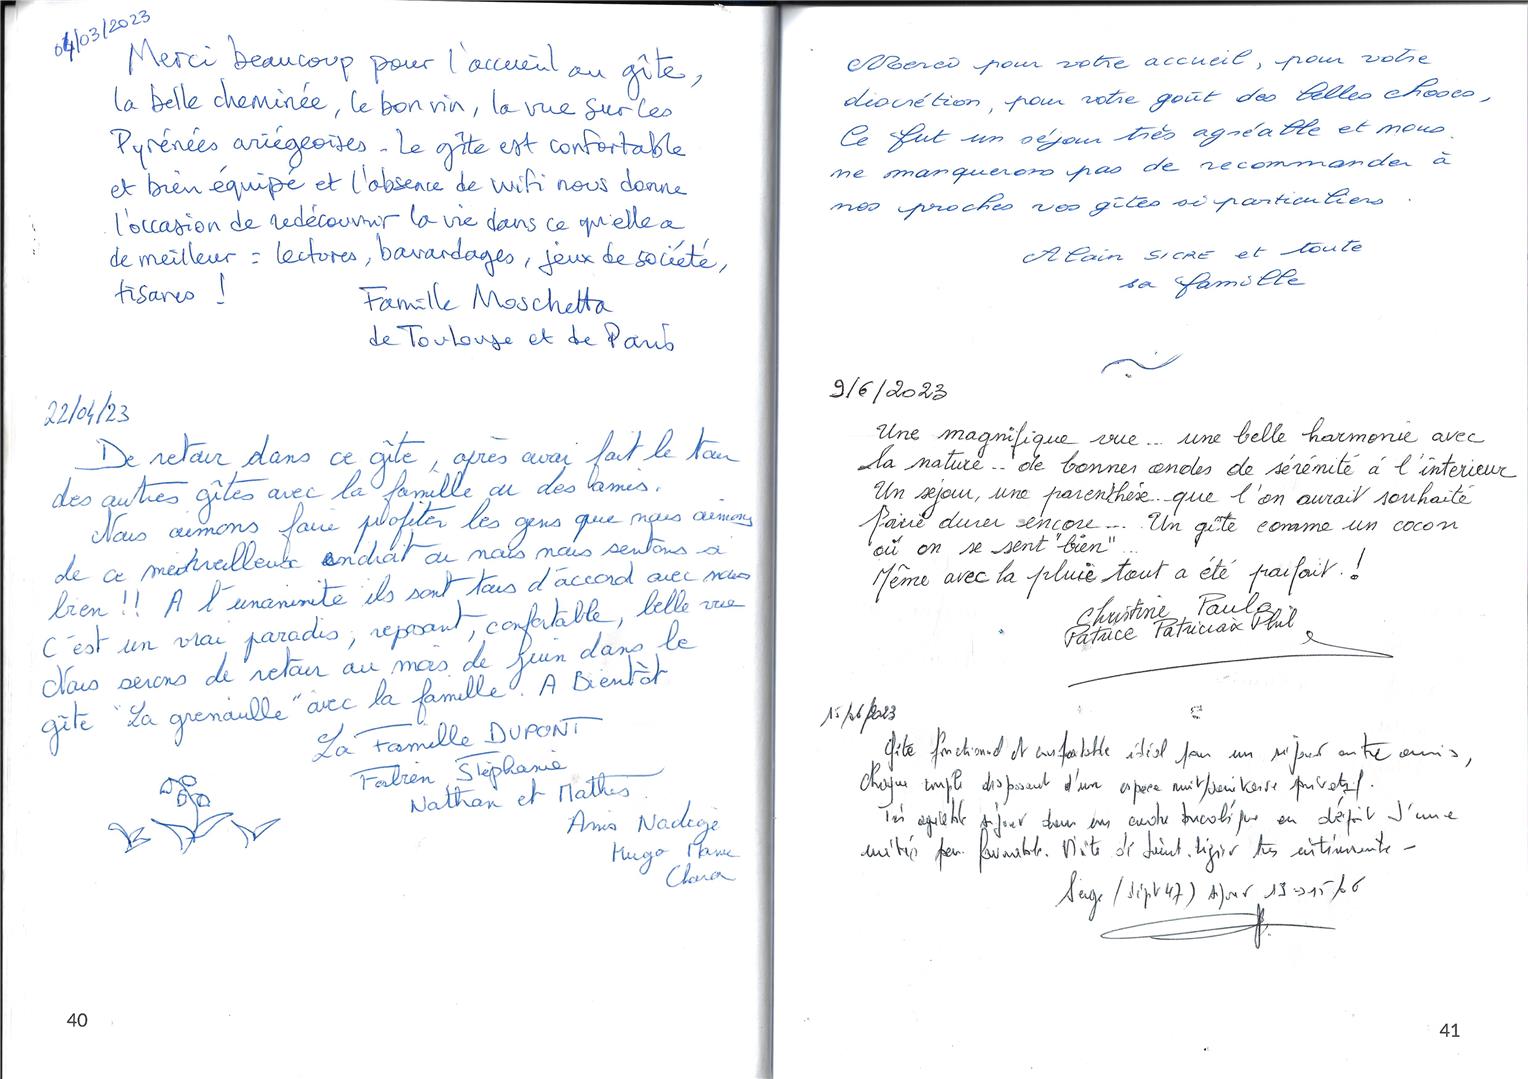 04/03/2023
Merci beaucoup pour l'accueil au gîte,
la belle cheminée, le bon vin, la vue sur les
Pyrénées ariégeoises - Le gîte est confortable
et bien équipé et l'absence de wifi nous donne
l'occasion de redécouvrir la vie dans ce qu'elle a
de meilleur = lectures, bavardages, jeux de société,
tisanes !
Famille Moschetta
de Toulouse et de Paris
22/04/23
De retour dans ce gîte, après avoir fait le tour
des autres gîtes avec la famille ou des amis.
Nous aimons faire profiter les gens que nous aimons
de ce merveilleux endroit où nous nous sentons si
bien !! A l'unanimité ils sont tous d'accord avec nous
C'est un vrai paradis, reposant, confortable, belle vue
Nous serons de retour au mois de Juin dans le
gîte "La grenouille" avec la famille. A Bientôt
La Famille DUPONT
Fabien Stéphanie
Nathan et Mathis.
Amis Nadège
Hugo
40
Merci pour votre accueil, pour votre
discrétion, pour votre goût des belles choses,
Ce fut un séjour très agréable et nous
ne manquerons pas de recommander à
nos proches vos gîtes si particuliers.
Alain SICRE et toute
sa famille
9/6/2023
Une magnifique vue... une belle harmonie avec
la nature... de bonnes ondes de sérénité à l'interieur
Un séjour, une parenthèse... que l'on aurait souhaité
faire durer encore.... Un gîte comme un cocon
où on se sent "bien"...
Même avec la pluie tout a été parfait. !
Christine Paule
Patrice Patricia Phil
15/06/2023
Gîte fonctionnel et confortable idéal pour un séjour entre amis,
Chaque couple disposant d'un espace nuit/sanitaire privatif.
Très agréable séjour dans un cadre bucolique en dépit d'une
météo peu favorable. Visite de Saint-Lizier très intéressante -
Serge (dépt 47) séjour 13 => 15/06
41